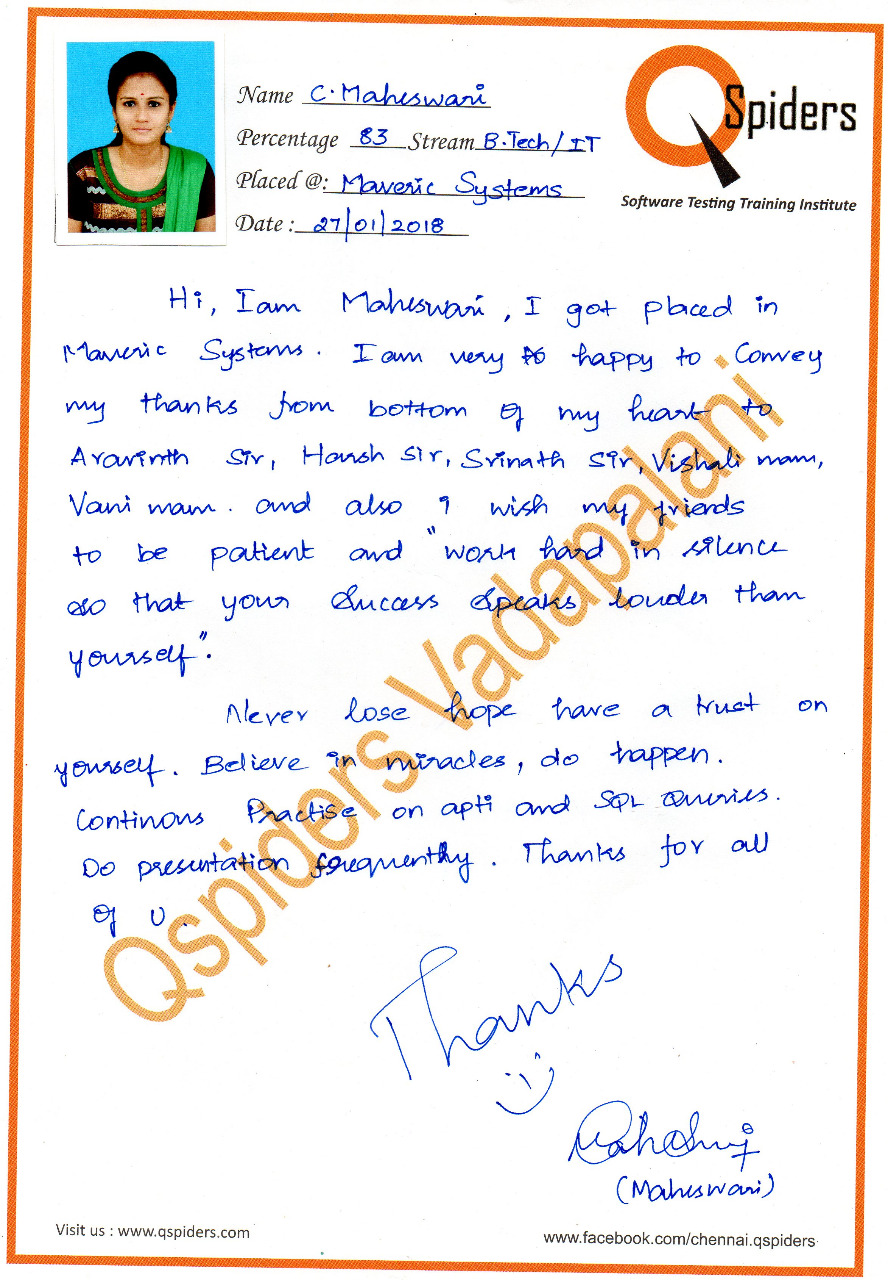 Name C. Maheswari
Percentage 83 Stream B.Tech/IT
Placed @: Maveric Systems
Date : 27/01/2018
QSpiders
Software Testing Training Institute
Hi, I am Maheswari, I got placed in
Maveric Systems. I am very happy to Convey
my thanks from bottom of my heart to
Aravinth sir, Harsh sir, Srinath sir, Vishali mam,
Vani mam. and also I wish my friends
to be patient and "work hard in silence
so that your Success Speaks louder than
yourself".
Never lose hope have a trust on
yourself. Believe in miracles, do happen.
Continous Practise on apti and SQL Queries.
Do presentation frequently. Thanks for all
of U.
Thanks
(Maheswari)
Qspiders Vadapalani
Visit us : www.qspiders.com
www.facebook.com/chennai.qspiders